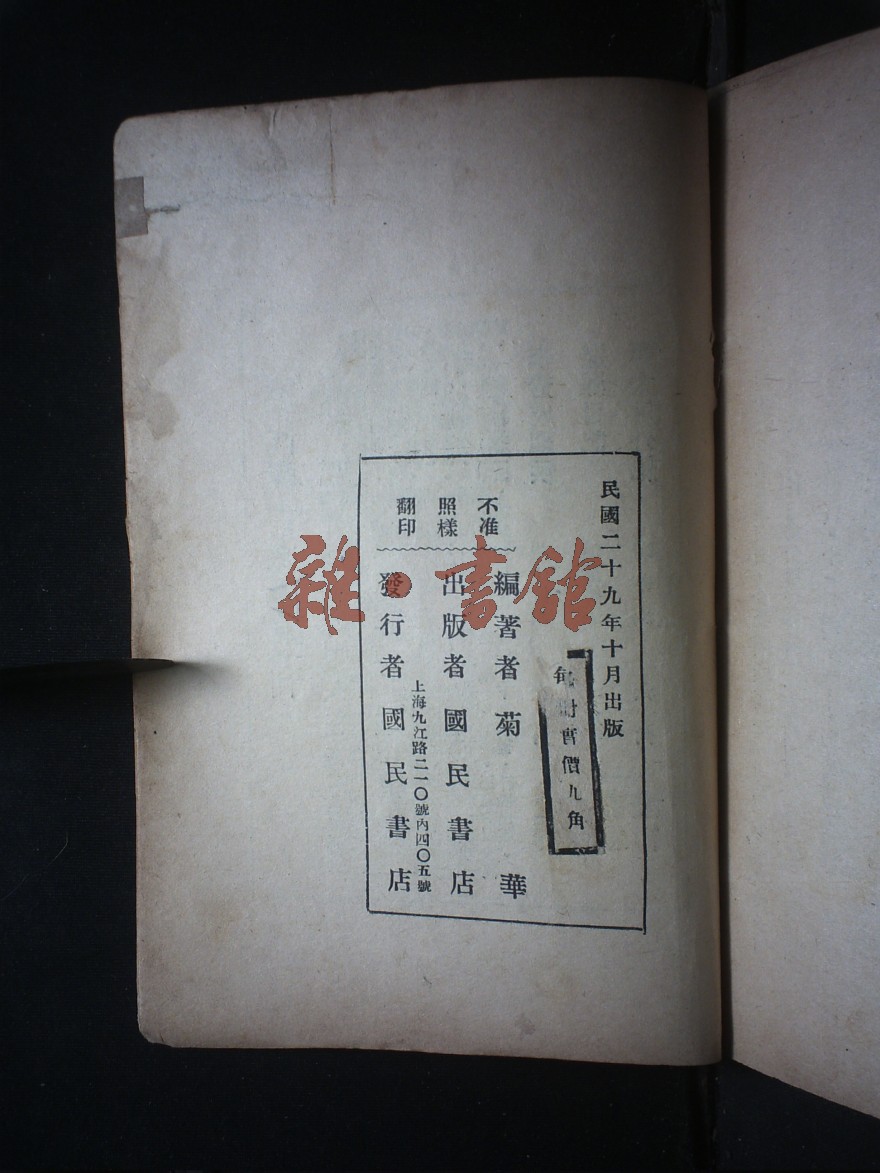 民國二十九年十月出版
每冊實價九角
編著者菊華
出版者國民書店
上海九江路二一〇號內四〇五號
發行者國民書店
不准
照樣
翻印
雜·書館